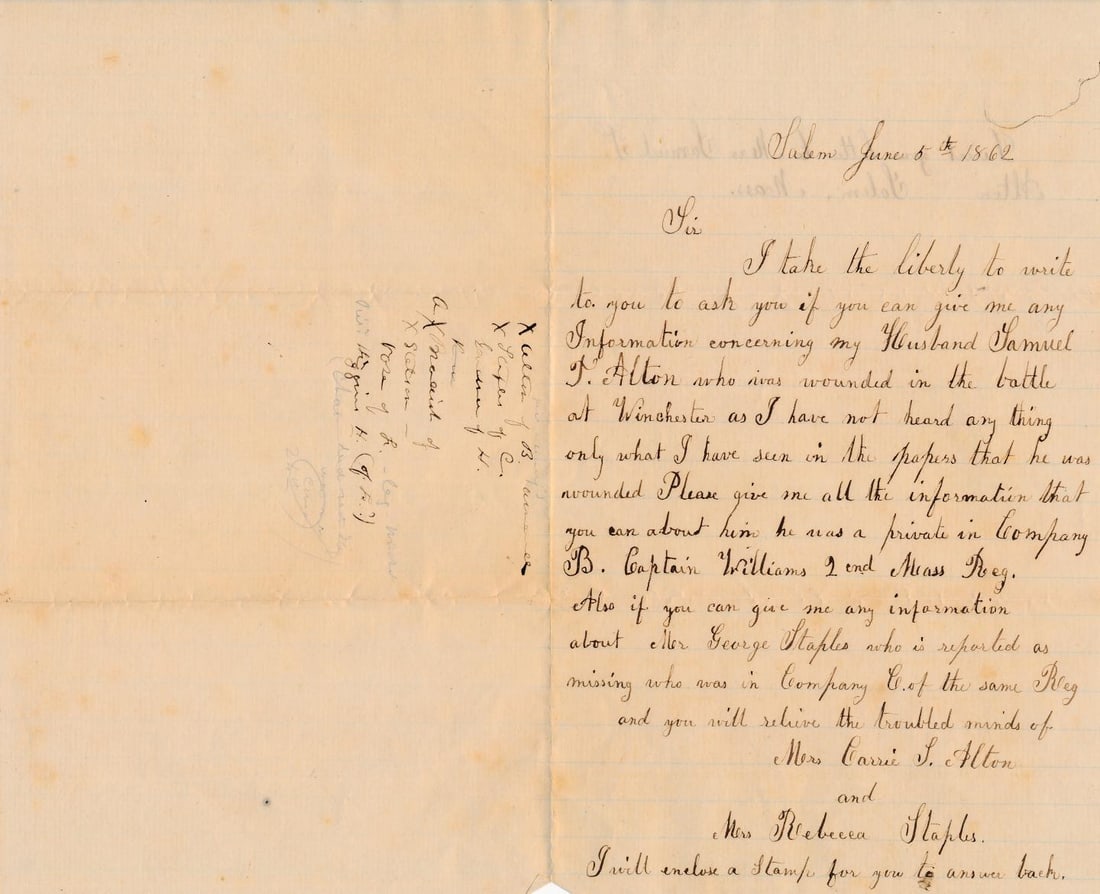 Salem June 5th 1862
Sir
I take the liberty to write
to you to ask you if you can give me any
Information concerning my Husband Samuel
T. Alton who was wounded in the battle
at Winchester as I have not heard any thing
only what I have seen in the papers that he was
wounded Please give me all the information that
you can about him he was a private in Company
B. Captain Williams 2end Mass Reg.
Also if you can give me any information
about Mr George Staples who is reported as
missing who was in Company C. of the same Reg
and you will relieve the troubled minds of
Mrs Carrie S. Alton
and
Mrs Rebecca Staples.
I will enclose a Stamp for you to answer back.
X Alton of B.
X Staples of C.
of H.
of
X
of
Higgins H. (of K?)